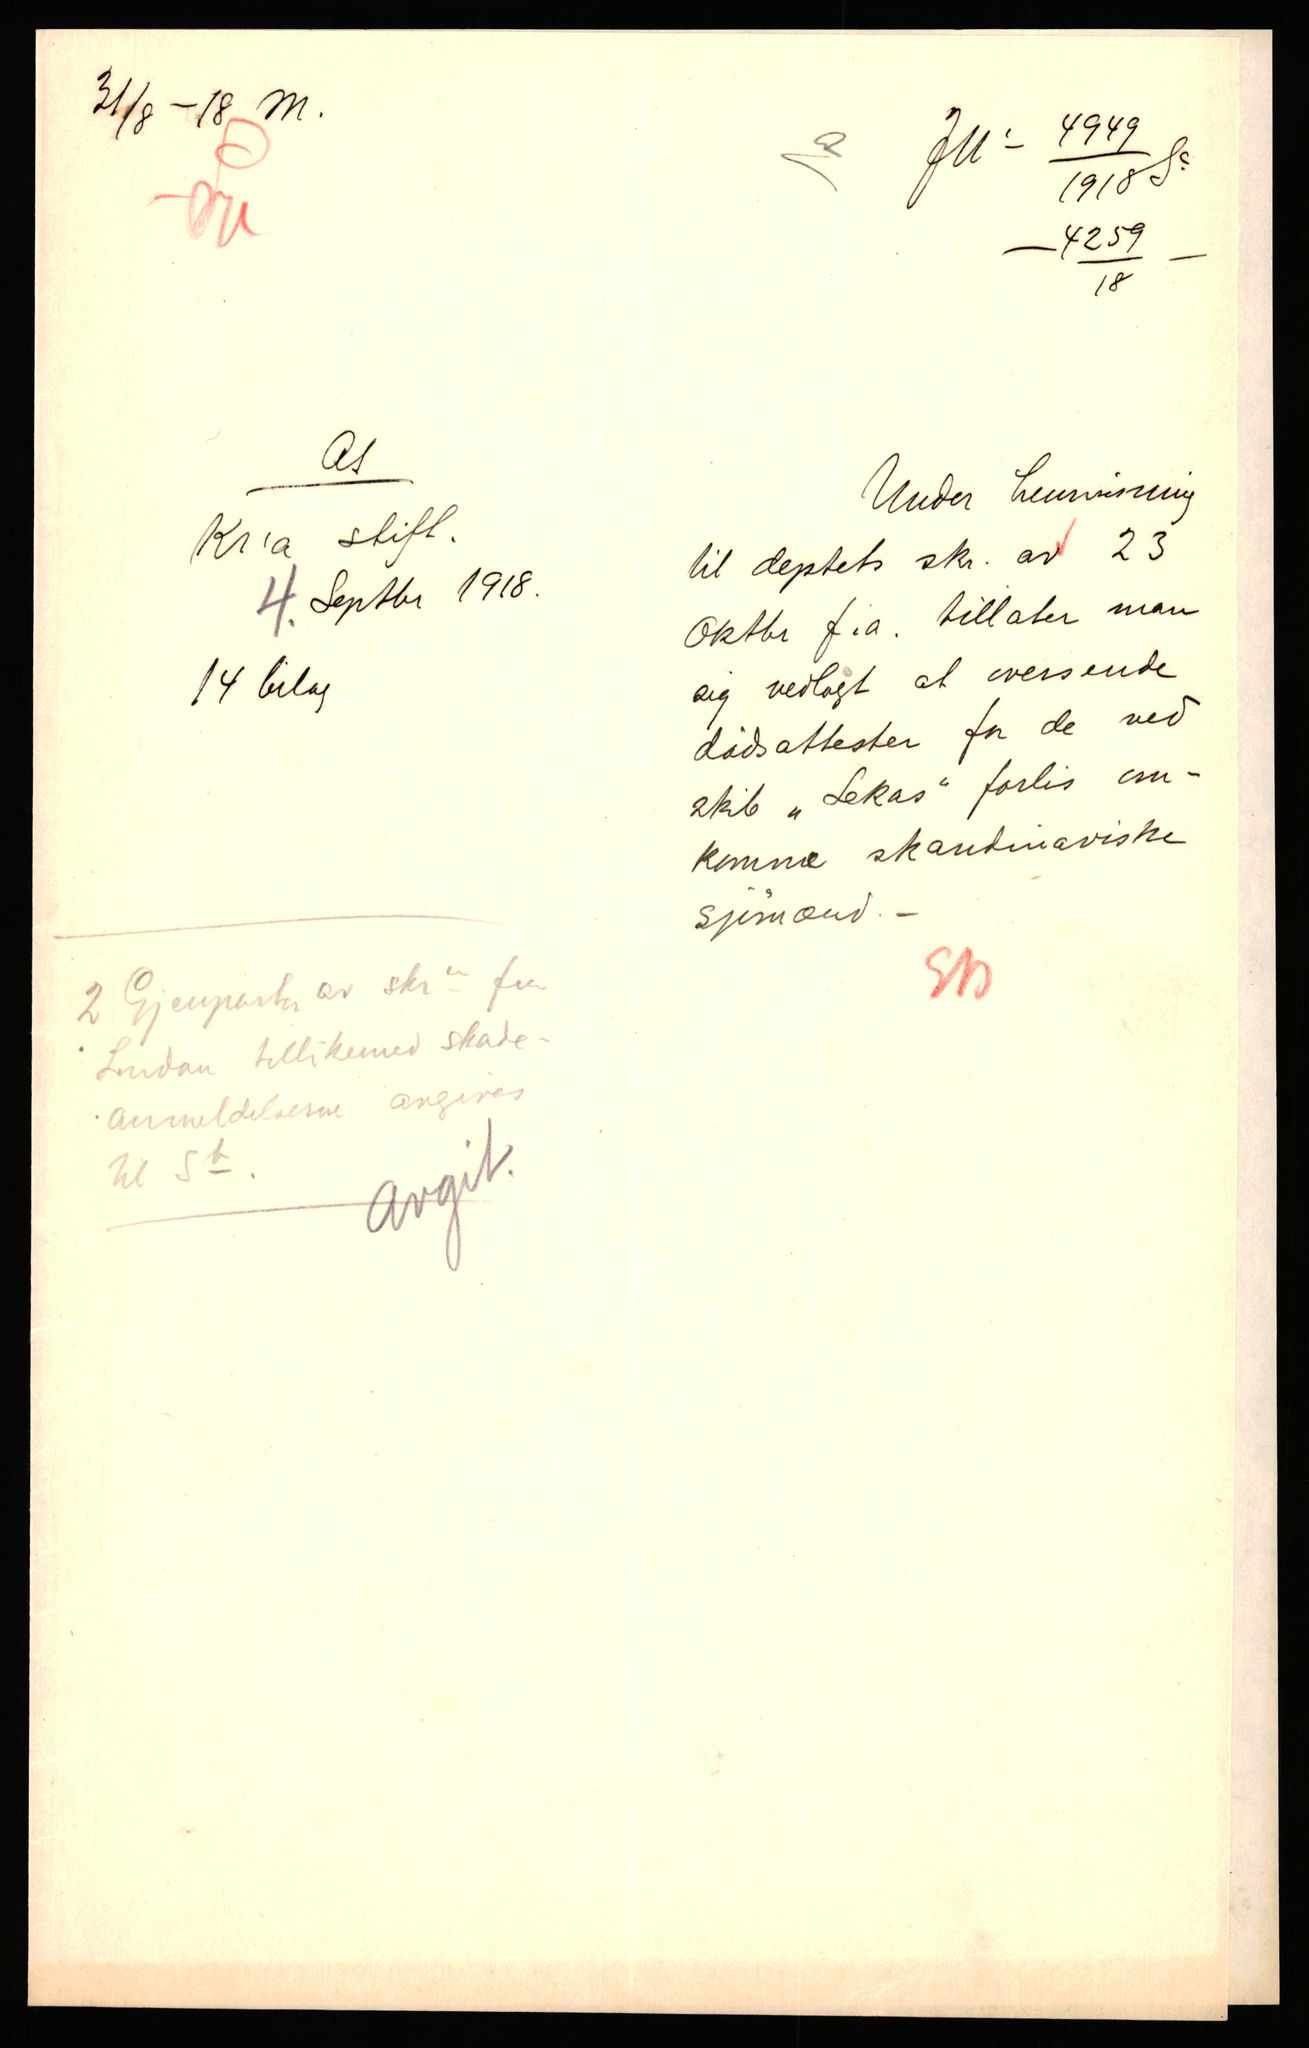 31/8 – 18 M.
JN<sup>r</sup> 4949
1918 S<sup>c</sup>
— 4259 —
18
As
Kr:a stift.
4. Septbr 1918.
14 bilag
Under henvisning
til deptets skr. av 23
Oktbr f.a. tillater man
sig vedlagt at oversende
dödsattester for de ved
skib „Lekas" forlis om-
komne skandinaviske
sjömænd. –
2 Gjenparter av skr<sup>n</sup> fra
London tillikemed skade-
anmeldelserne avgives
til S<sup>b</sup>.
avgit.